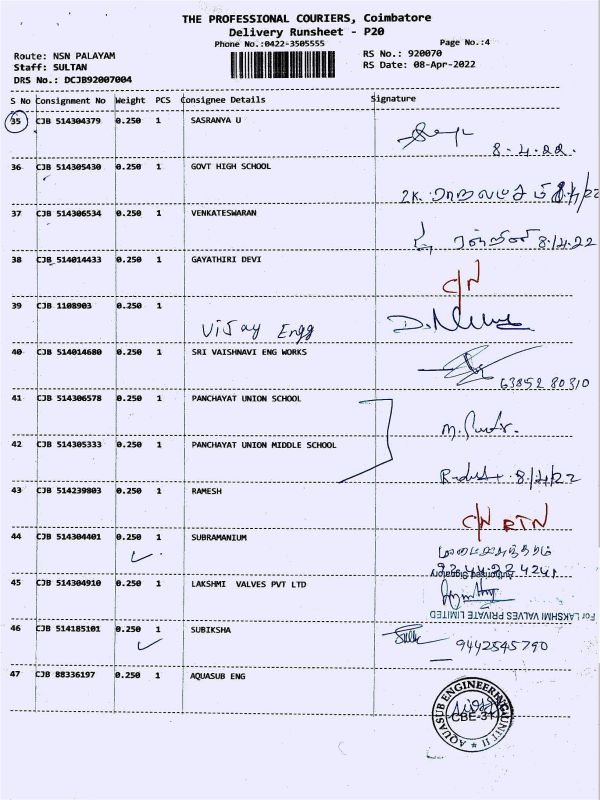 THE PROFESSIONAL COURIERS, Coimbatore
Delivery Runsheet - P20
Phone No.:0422-3505555 Page No.:4
Route: NSN PALAYAM RS No.: 920070
Staff: SULTAN RS Date: 08-Apr-2022
DRS No.: DCJB92007004
S No Consignment No Weight PCS Consignee Details Signature
35 CJB 514304379 0.250 1 SASRANYA U
8.4.22.
36 CJB 514305430 0.250 1 GOVT HIGH SCHOOL
37 CJB 514306534 0.250 1 VENKATESWARAN
8.4.22
38 CJB 514014433 0.250 1 GAYATHIRI DEVI
C/N
39 CJB 1108903 0.250 1
Vijay Engg
40 CJB 514014680 0.250 1 SRI VAISHNAVI ENG WORKS
63852 80310
41 CJB 514306578 0.250 1 PANCHAYAT UNION SCHOOL
42 CJB 514305333 0.250 1 PANCHAYAT UNION MIDDLE SCHOOL
8/4/22
43 CJB 514239803 0.250 1 RAMESH
C/N RTN
44 CJB 514304401 0.250 1 SUBRAMANIUM
Authorised Signatory
45 CJB 514304910 0.250 1 LAKSHMI VALVES PVT LTD
For LAKSHMI VALVES PRIVATE LIMITED
46 CJB 514185101 0.250 1 SUBIKSHA
9442545790
47 CJB 88336197 0.250 1 AQUASUB ENG
AQUASUB ENGINEERING UNIT II
CBE-31